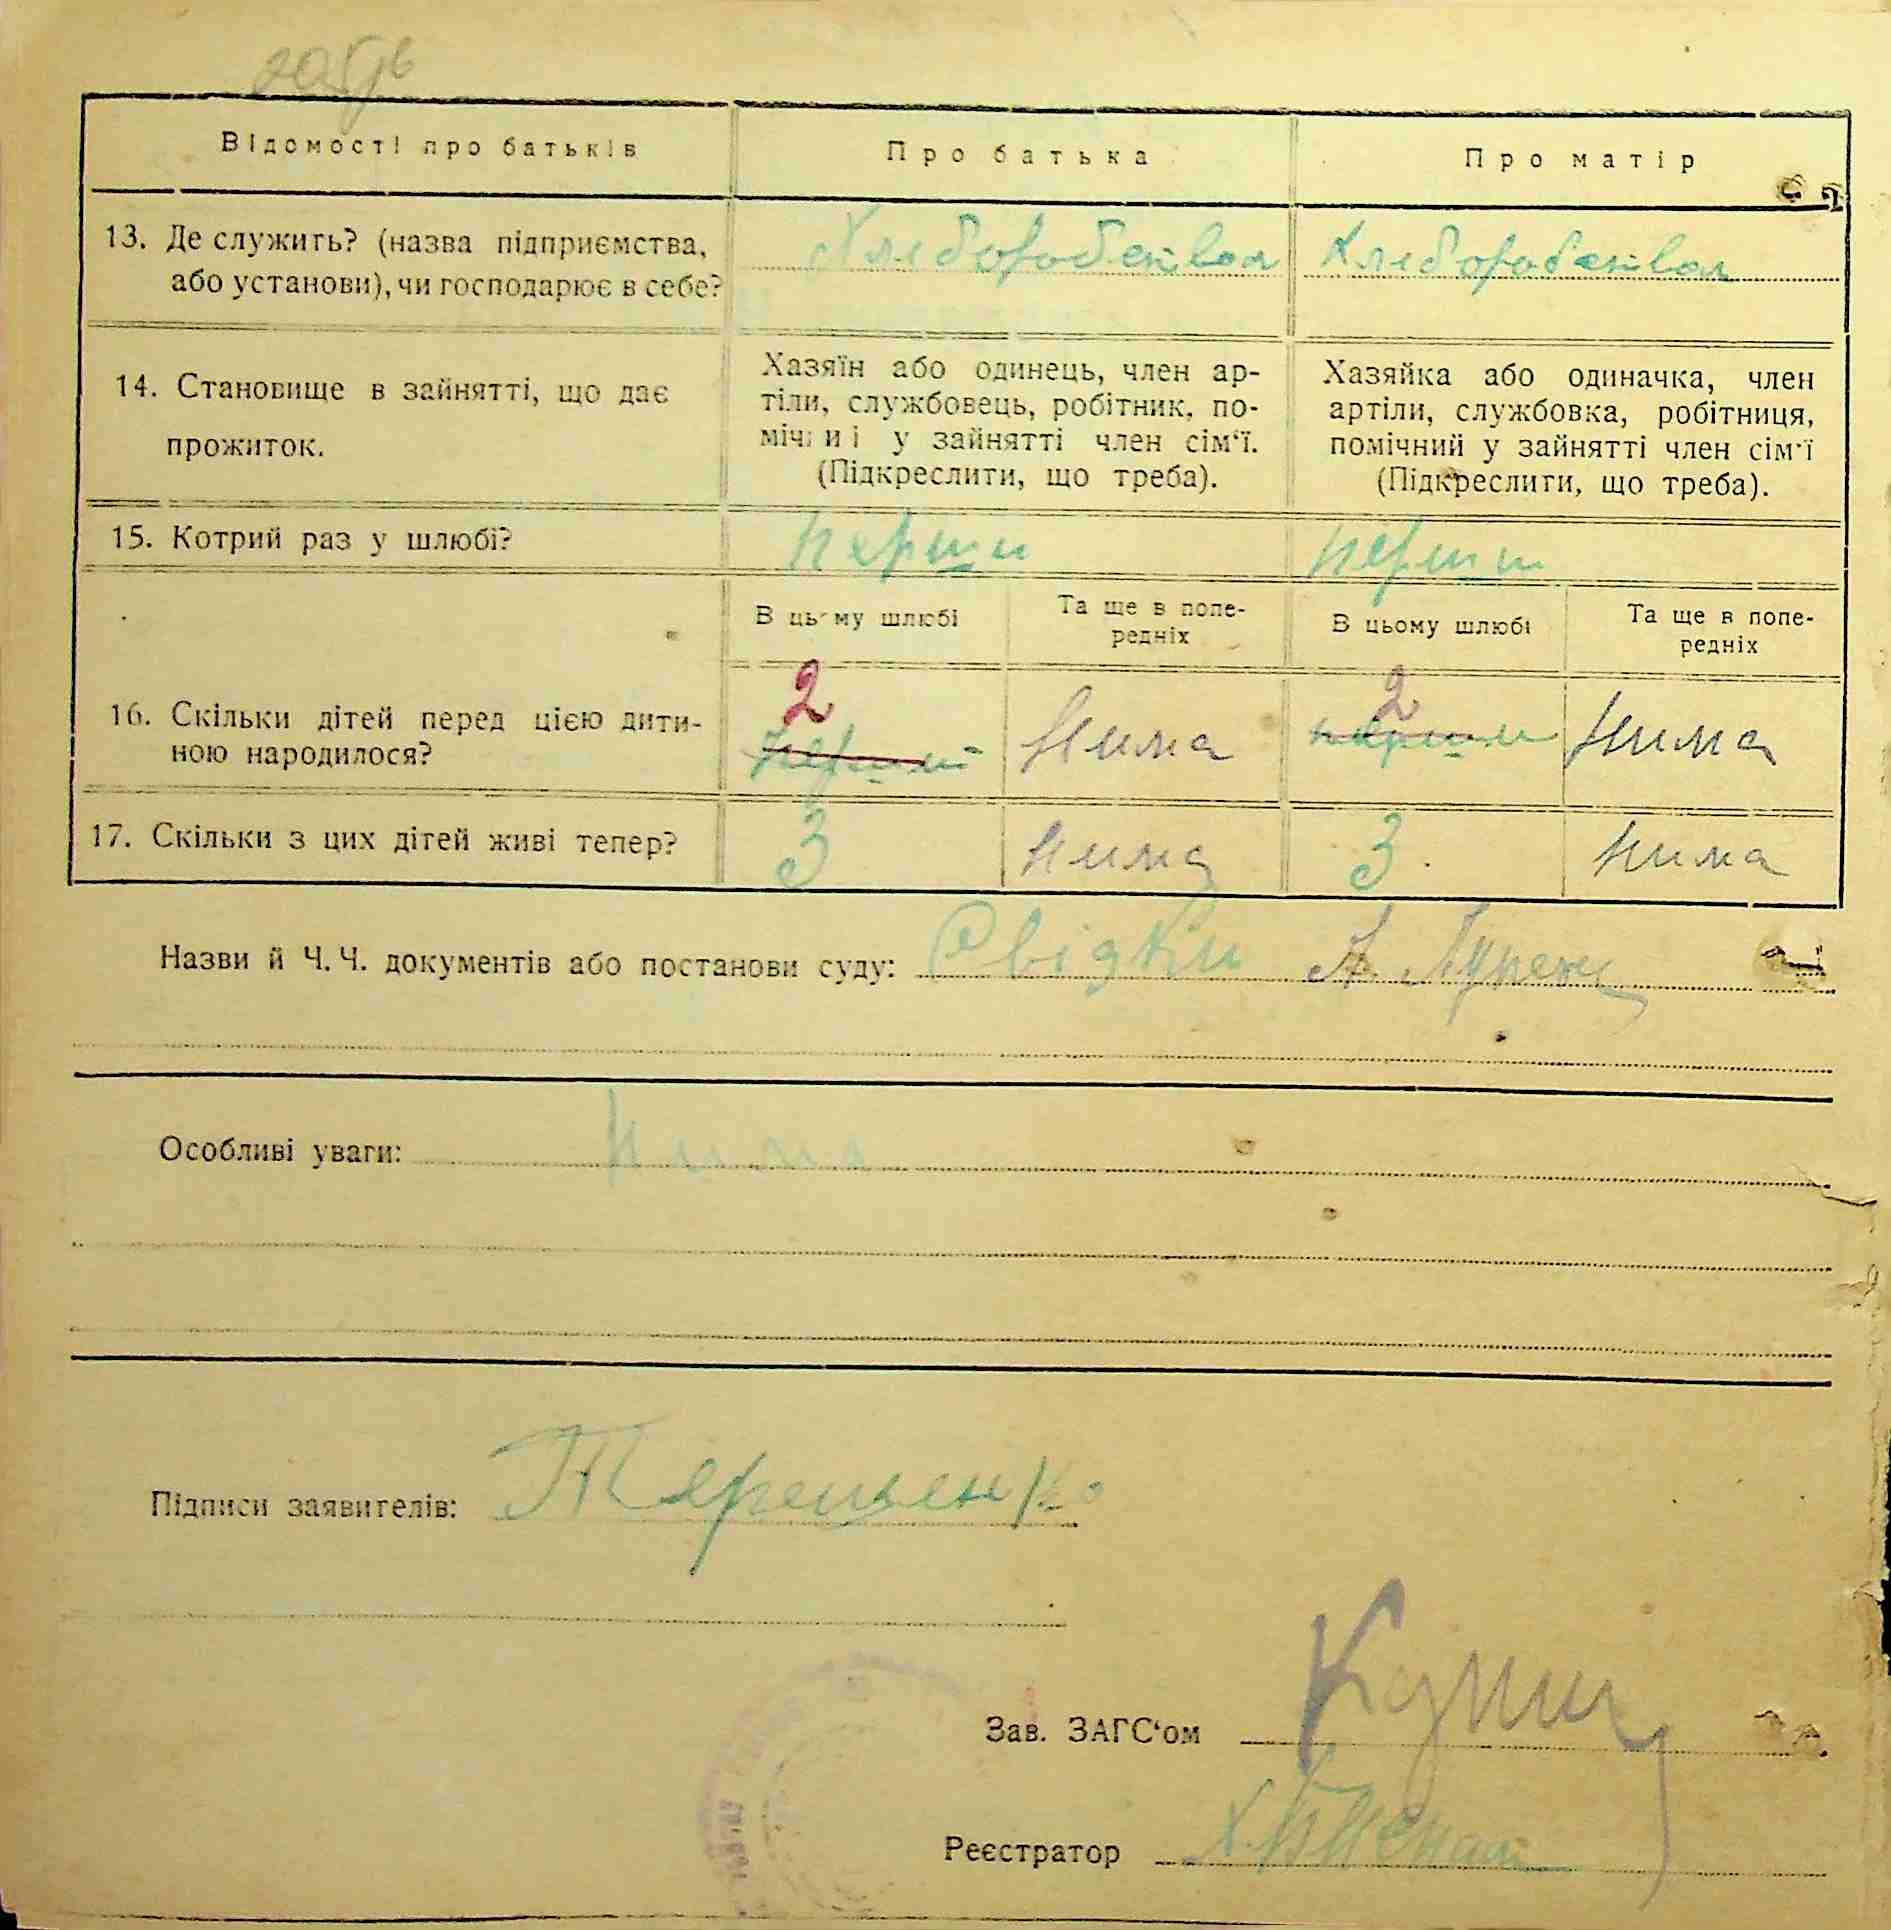 Відомості про батьків
Про батька
Про матір
13. Де служить? (назва підприємства,
або установи), чи господарює в себе?
14. Становище в зайнятті, що дає
прожиток.
Хазяїн або одинець, член ар-
тіли, службовець, робітник, по-
у зайнятті член сім‘ї.
(Підкреслити, що треба).
Хазяйка або одиначка, член
артіли, службовка, робітниця,
помічний у зайнятті член сім‘ї
(Підкреслити, що треба).
15. Котрий раз у шлюбі?
перши
перший
В цьому шлюбі
Та ще в попе-
редніх
В цьому шлюбі
Та ще в попе-
редніх
16. Скільки дітей перед цією дити-
ною народилося?
2
перший
Нима
2
Нима
17. Скільки з цих дітей живі тепер?
3
нима
3
нима
Назви й Ч. Ч. документів або постанови суду: Свідки
Особливі уваги: Нима
Підписи заявителів: Терещенко
Зав. ЗАГС‘ом
Реєстратор